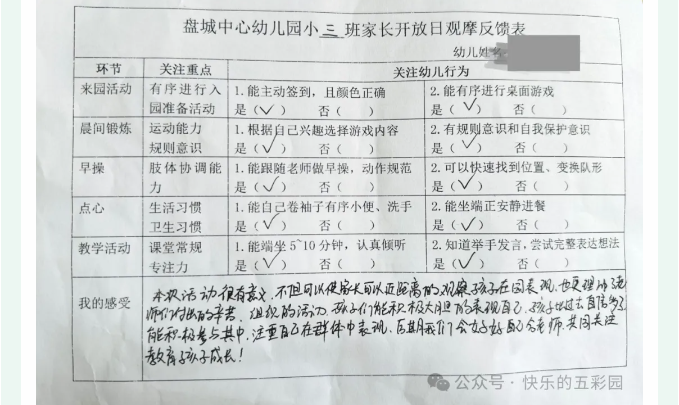 盘城中心幼儿园小三班家长开放日观摩反馈表
幼儿姓名
环节 关注重点 关注幼儿行为
来园活动 有序进行入园准备活动 1.能主动签到，且颜色正确 2.能有序进行桌面游戏
是（✓） 否（ ） 是（✓） 否（ ）
晨间锻炼 运动能力 1.根据自己兴趣选择游戏内容 2.有规则意识和自我保护意识
规则意识 是（✓） 否（ ） 是（✓） 否（ ）
早操 肢体协调能力 1.能跟随老师做早操，动作规范 2.可以快速找到位置、变换队形
是（✓） 否（ ） 是（✓） 否（ ）
点心 生活习惯 1.能自己卷袖子有序小便、洗手 2.能坐端正安静进餐
卫生习惯 是（✓） 否（ ） 是（✓） 否（ ）
教学活动 课堂常规 1.能端坐5~10分钟，认真倾听 2.知道举手发言，尝试完整表达想法
专注力 是（✓） 否（ ） 是（✓） 否（ ）
我的感受 本次活动很有意义，不但可以使家长可以近距离的观察孩子在园表现，也更理解了老
师们付出的辛苦。组织的活动，孩子们能积极大胆的表现自己，孩子比过去自信多了
能积极参与其中，注重自己在群体中表现，后期我们会好好配合老师，共同关注
教育孩子成长！
公众号·快乐的五彩园